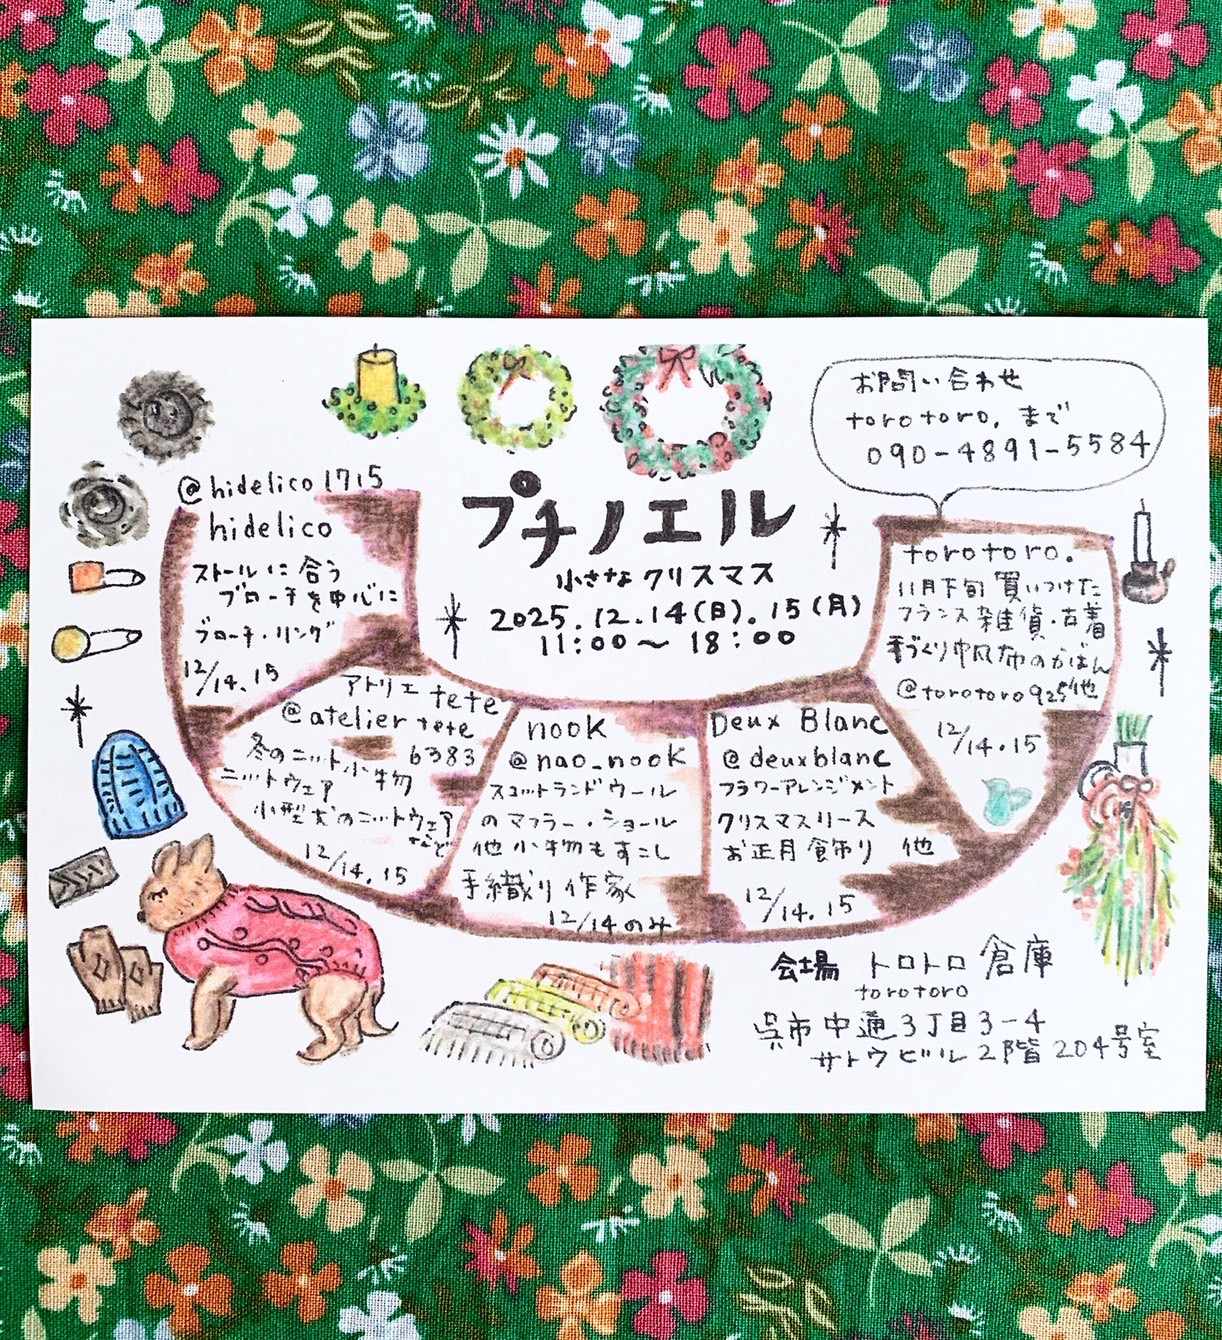 プチノエル
小さなクリスマス
2025.12.14(日).15(月)
11:00〜18:00
お問い合わせ
torotoro.まで
090-4891-5584
@hidelico1715
hidelico
ストールに合う
ブローチを中心に
ブローチ・リング
12/14.15
アトリエtete
@atelier tete
6383
冬のニット小物
ニットウェア
小型犬のニットウェア
など
12/14.15
nook
@nao_nook
スコットランドウール
のマフラー・ショール
他小物もすこし
手織り作家
12/14のみ
Deux Blanc
@deuxblanc
フラワーアレンジメント
クリスマスリース
お正月飾り 他
12/14.15
torotoro.
11月下旬買いつけた
フランス雑貨・古着
手づくり帆布のかばん
@torotoro925他
12/14.15
会場 トロトロ倉庫
torotoro
呉市中通3丁目3-4
サトウビル2階204号室